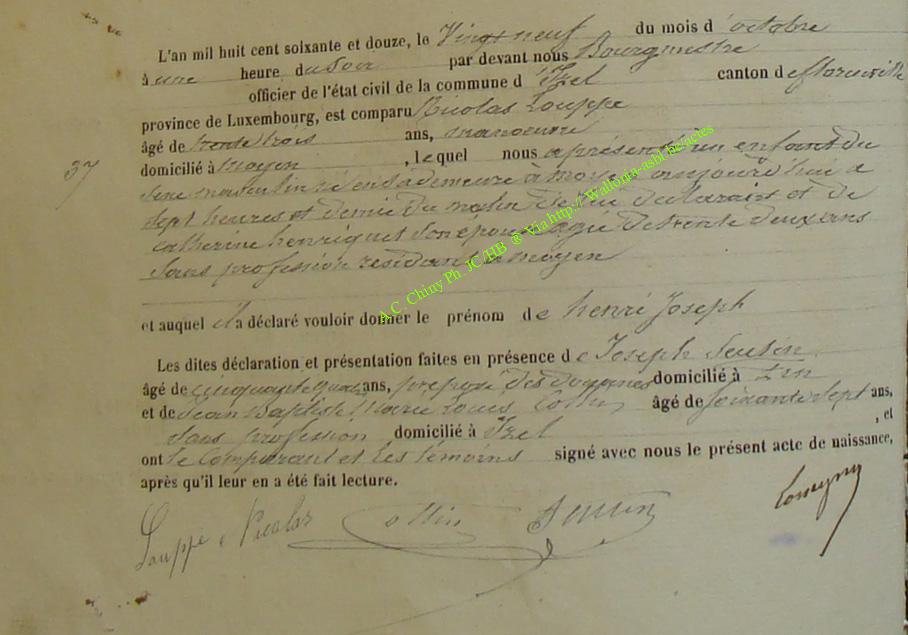 L'an mil huit cent soixante et douze, le Vingt neuf du mois d'octobre
à une heure du Soir par devant nous Bourgmestre
officier de l'état civil de la commune d'Izel canton de florenville
province de Luxembourg, est comparu Nicolas Louppe
âgé de trente trois ans, manoeuvre
37
domicilié à moyen, lequel nous a présenté un enfant du
sexe masculin né en sa demeure à moyen aujourd'hui a
sept heures et demie du matin de lui déclarant et de
catherine henriquet son epouse agée de trente deux ans
sans profession residant a moyen
et auquel il a déclaré vouloir donner le prénom de henri Joseph
Les dites déclaration et présentation faites en présence de Joseph
âgé de cinquante ans, préposé des douanes domicilié à
et de Jean Baptiste Marie Louis Collin âgé de soixante sept ans,
sans profession domicilié à Izel, et
ont le Comparant et les témoins signé avec nous le présent acte de naissance,
après qu'il leur en a été fait lecture.
Louppe Nicolas Collin
A.C. Chiny Ph. JC/HB @ Via http://Wallonia-asbl.be/actes